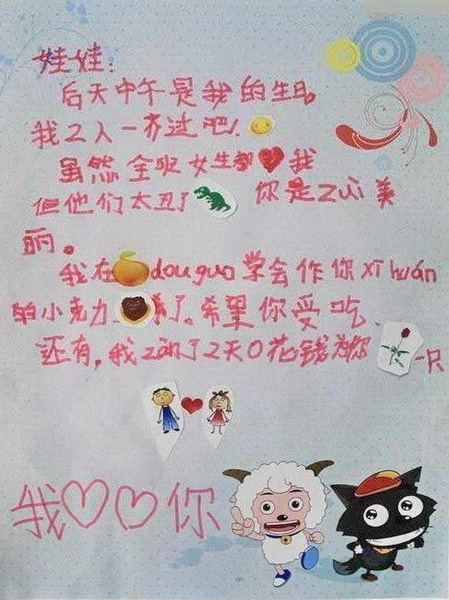 娃娃：
后天中午是我的生日。
我2人一齐过吧！
虽然全班女生都我
但他们太丑了 你是zuì美
丽。
我在douguo学会作你xǐ huán
的小克力了。希望你受吃
还有，我了2天0花钱为你一只
我♡♡你